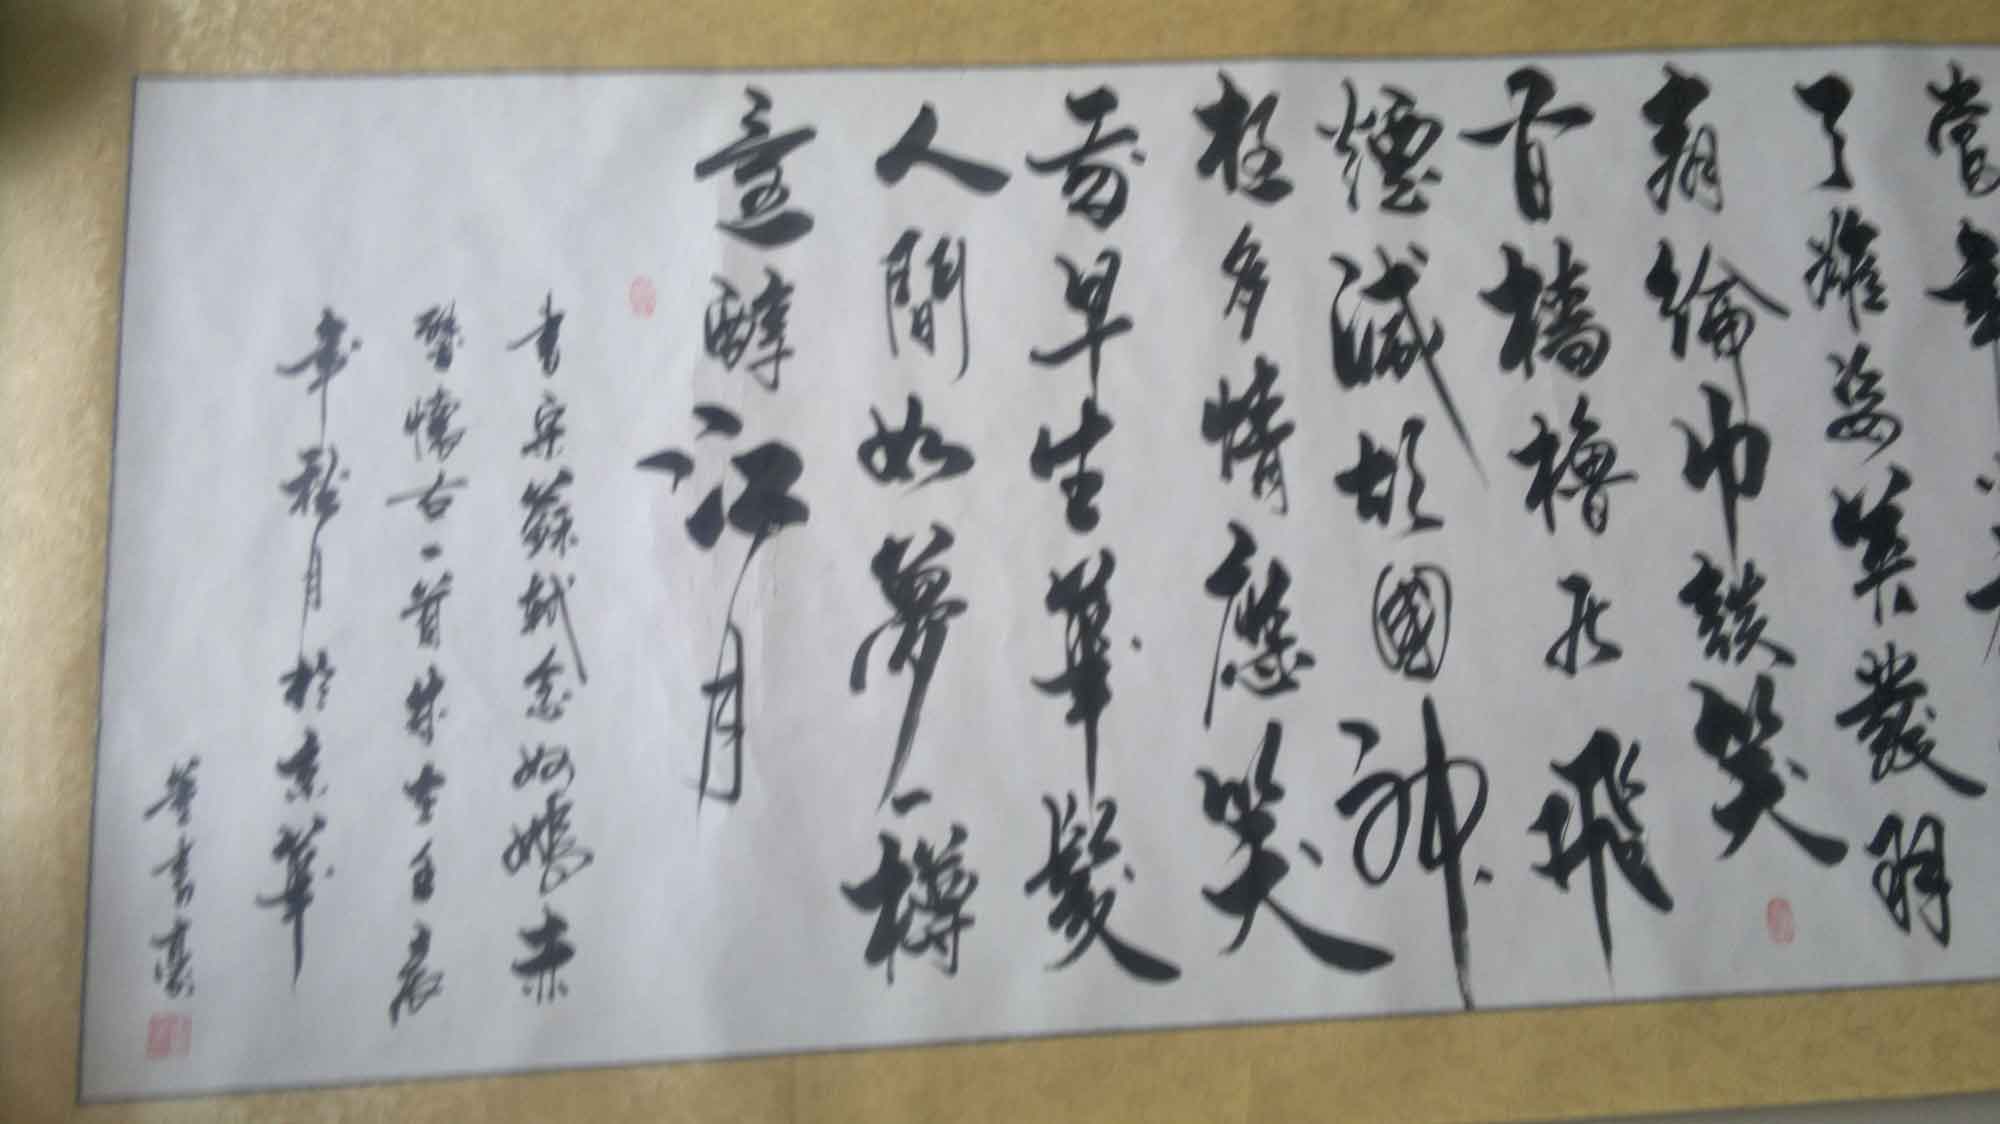 當年小喬
了雄姿英發羽
扇綸巾談笑
間檣櫓灰飛
煙滅故國神
遊多情應笑
我早生華髮
人間如夢一樽
還酹江月
書宋蘇軾念奴嬌赤
壁懷古一首時在壬辰
年秋月於京華